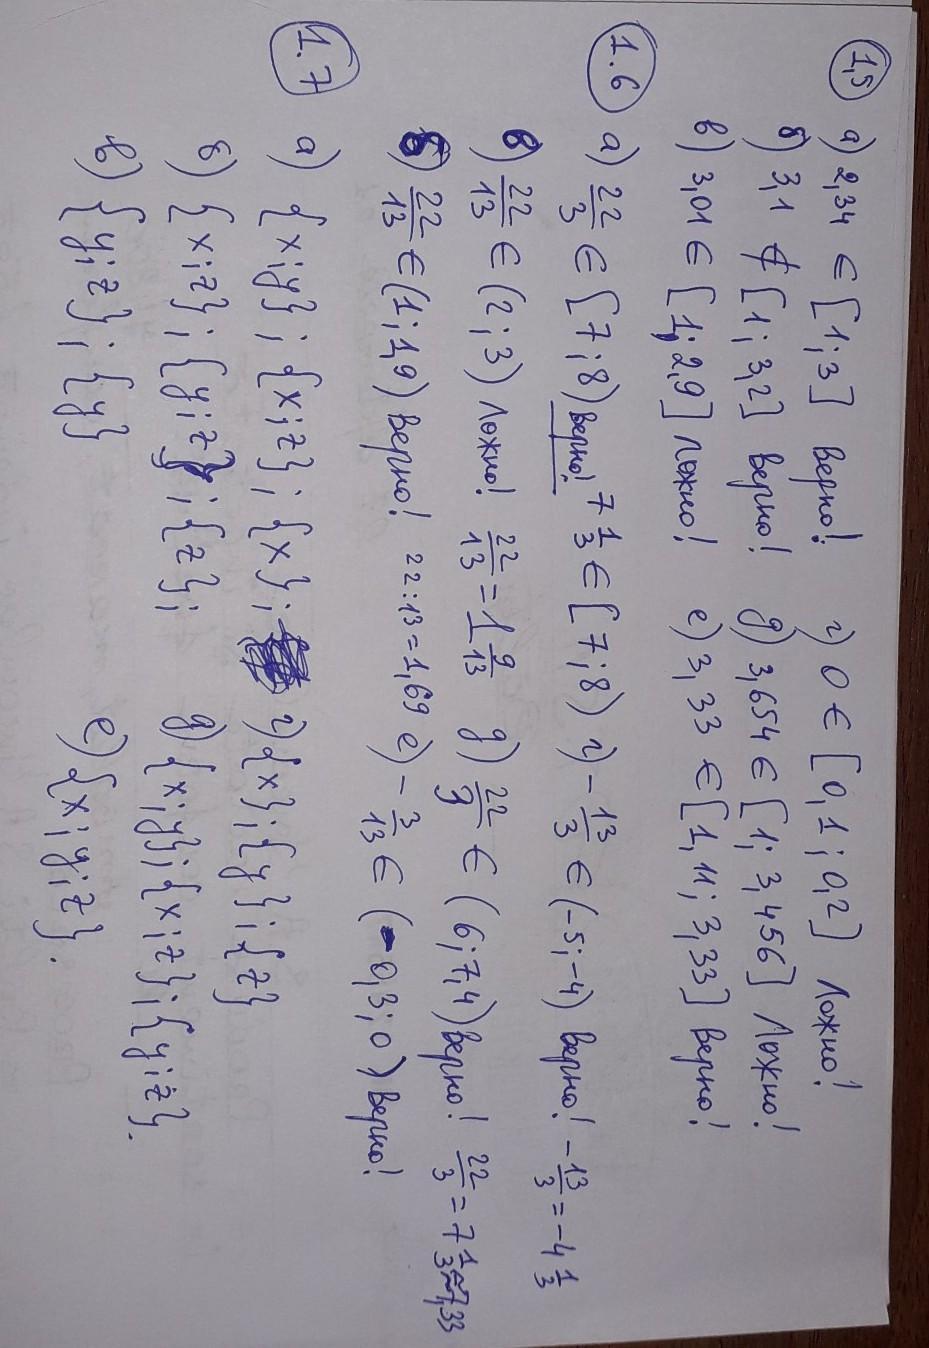 1,5 а) 2,34 ∈ [1;3] верно! г) 0 ∈ [0,1;0,2] Ложно!
б) 3,1 ∉ [1; 3,2] верно! д) 3,654 ∈ [1; 3,456] Ложно!
в) 3,01 ∈ [1; 2,9] ложно! е) 3,33 ∈ [1,11; 3,33] верно!
1.6 а) 22/3 ∈ [7;8) верно! 7 1/3 ∈ [7;8) г) -13/3 ∈ (-5;-4) верно! -13/3 = -4 1/3
в) 22/13 ∈ (2;3) ложно! 22/13 = 1 9/13 д) 22/3 ∈ (6;7,4) верно! 22/3 = 7 1/3 ≈ 7,33
б) 22/13 ∈ (1;1,9) верно! 22:13=1,69 е) -3/13 ∈ (-0,3;0) верно!
1.7 а) {x;y}; {x;z}; {x}; г) {x}; {y}; {z}
б) {x;z}; {y;z}; {z}; д) {x;y}; {x;z}; {y;z}.
в) {y;z}; {y} е) {x;y;z}.